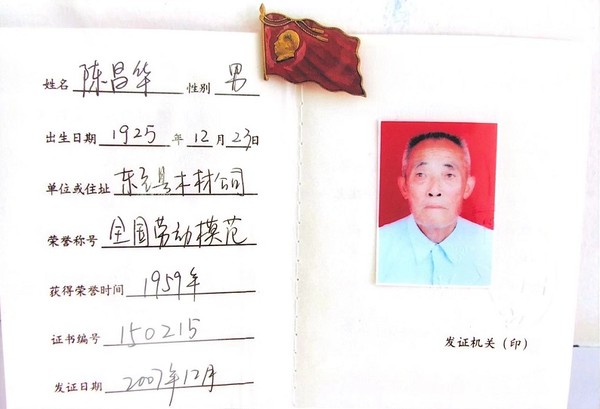 姓名 陈昌华 性别 男
出生日期 1925 年 12 月 23 日
单位或住址 东至县木材公司
荣誉称号 全国劳动模范
获得荣誉时间 1959年
证书编号 150215
发证日期 2007年12月
发证机关（印）